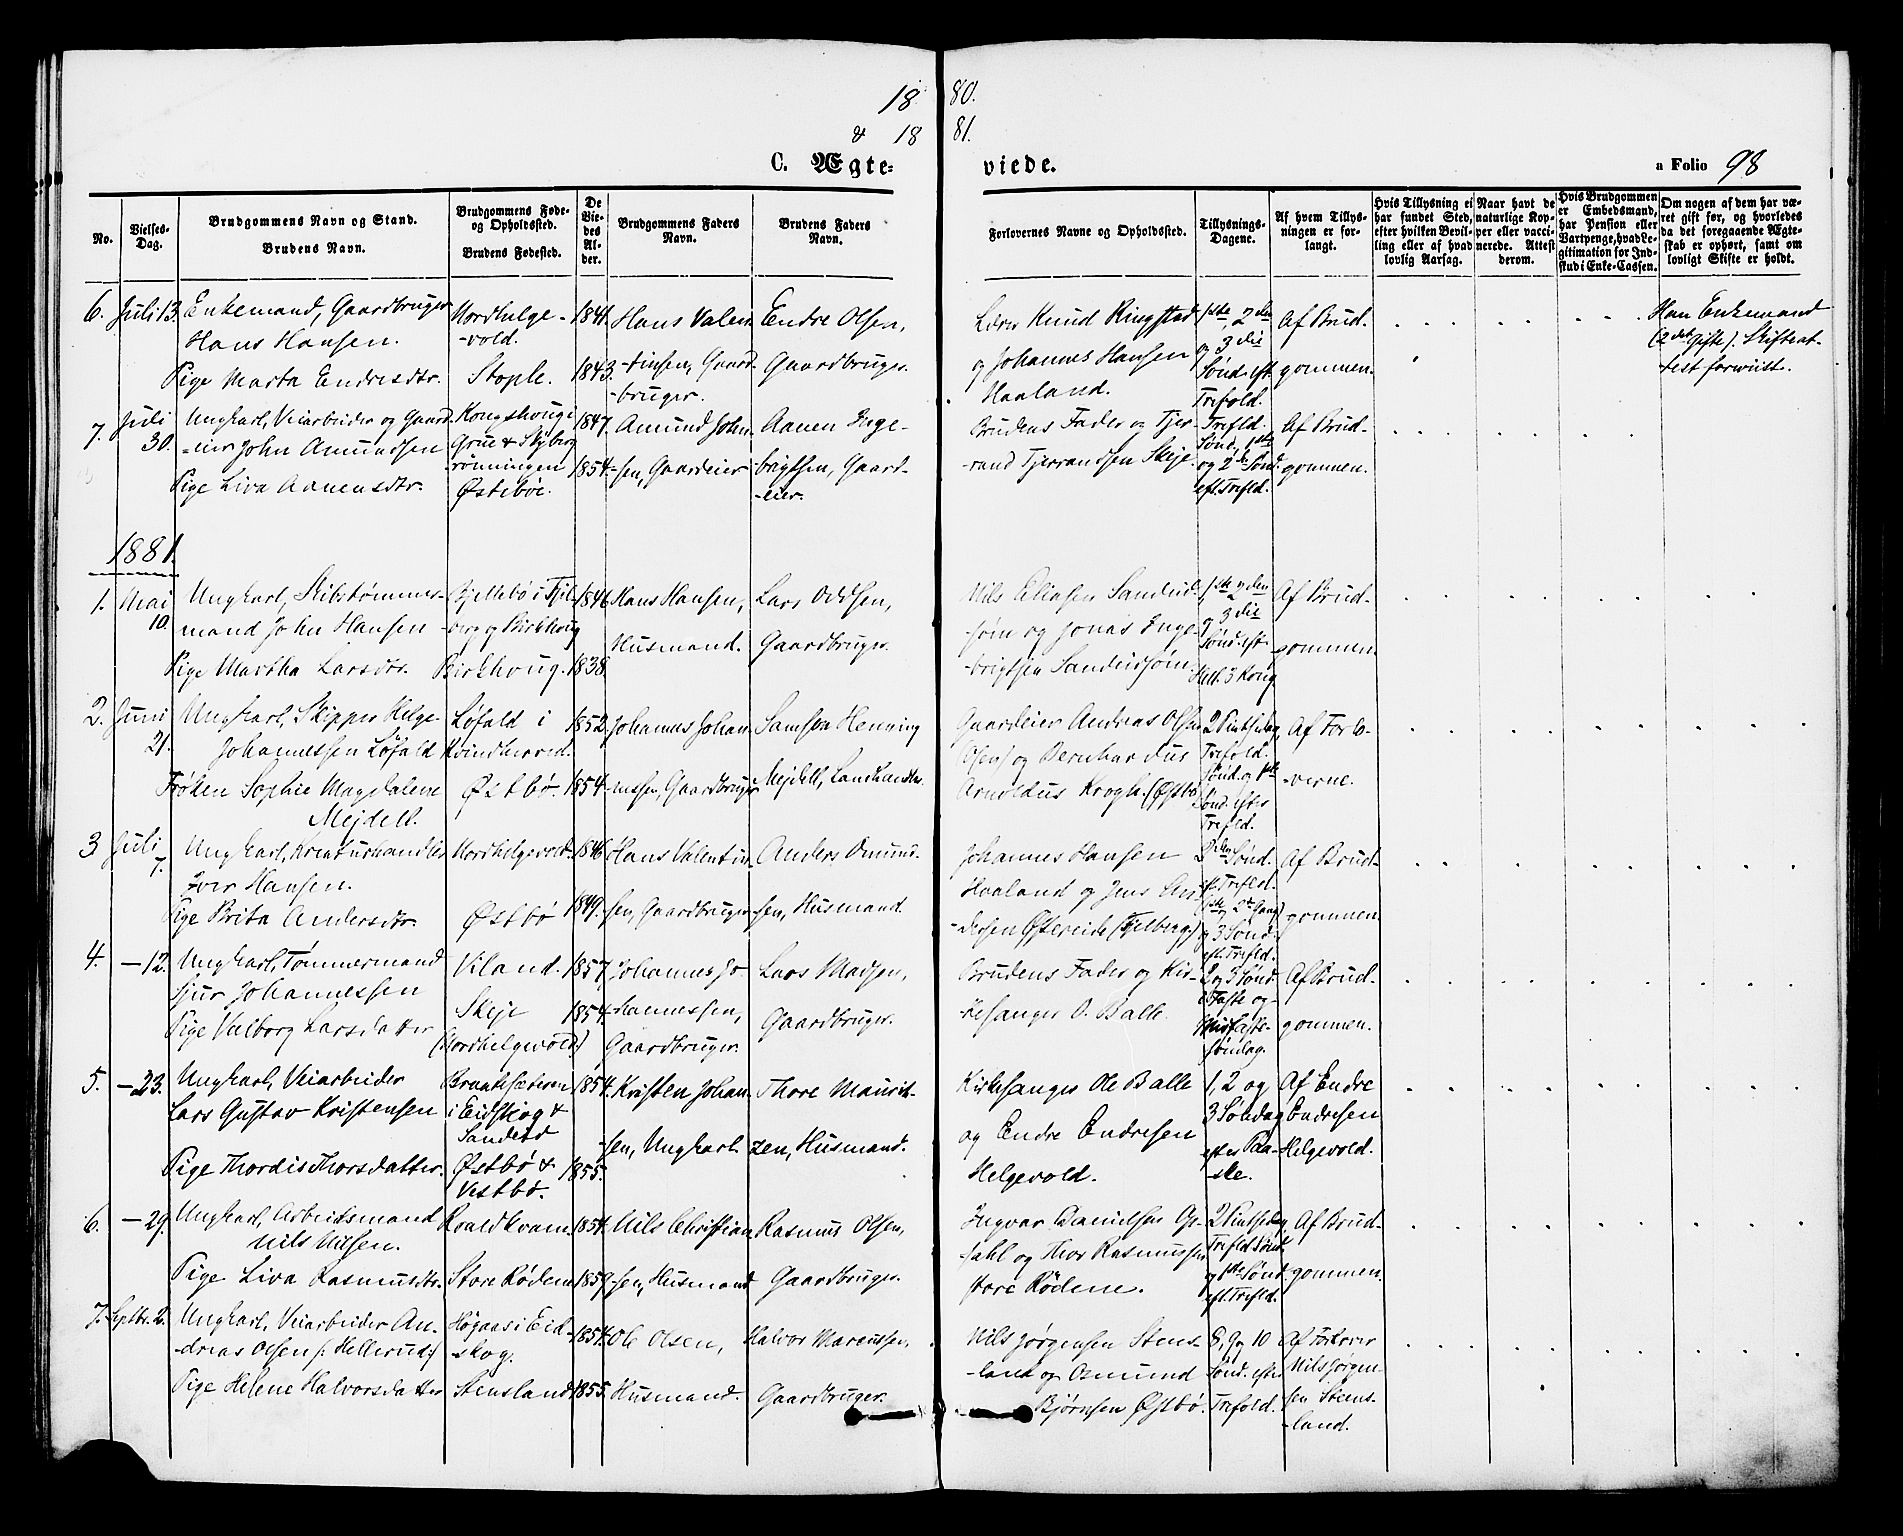 18 80.
& 18 81.
C. Ægte- viede.
a Folio 98
No.
Vielses-Dag.
Brudgommens Navn og Stand.
Brudens Navn.
Brudgommens Føde- og Opholdssted.
Brudens Fødested.
De Viedes Alder.
Brudgommens Faders Navn.
Brudens Faders Navn.
Forlovernes Navne og Opholdssted.
Tillysnings-Dagene.
Af hvem Tillysningen er forlangt.
Hvis Tillysning ei har fundet Sted, efter hvilken Bevilling eller af hvad lovlig Aarsag.
Naar havt de naturlige Kopper eller vaccinerede. Attest derom.
Hvis Brudgommen er Embedsmand, har Pension eller Vartpenge, hvad Legitimation for Indskud i Enke-Cassen.
Om nogen af dem har været gift før, og hvorledes da det foregaaende Ægteskab er ophørt, samt om lovligt Skifte er holdt.
6. Juli 13. Enkemand, Gaardbruger
Hans Hansen.
Pige Marta Endresdtr.
Nordhelge-
-vold.
Stople.
1841.
1843.
Hans Valen-
-tinsen, Gaard-
-bruger.
Endre Olsen,
Gaardbruger.
Lærer Knud Ringstad
og Johannes Hansen
Haaland.
1ste, 2den
og 3die
Sønd. eft.
Trefold.
Af Brud-
gommen.
Han Enkemand
(2det Gifte). Skifteat-
test forevist.
7. Juli
30.
Ungkarl, Veiarbeider og Gaard-
-eier John Amundsen
Pige Liva Aanensdtr.
Kongshougi
Grue & Skjberg
rönningen
Østebøe.
1847.
1854.
Amund John-
sen, Gaardeier
Aanen Inge-
brigtsen, Gaard-
-eier.
Brudens Fader og Tjer-
rand Tjerrandsen Skeje.
Trefld.
Sønd, 1ste
og 2de Sønd.
eft. Trefld.
Af Brud-
gommen.
1881.
1. Mai
10.
Ungkarl, Skibstømmer-
mand John Hansen
Pige Martha Larsdtr.
Bjellebø i Fjel-
berg og Birkhoug
Birkhoug.
1846
1838.
Hans Hansen,
Husmand.
Lars Oddsen,
Gaardbruger.
Nils Eliasen Sandeid-
søm og Jonas Inge-
-brigtsen Sandeidsøm.
1ste 2den
og 3die
Sønd. eft.
Hell. 3 Kong
Af Brud-
gommen.
2. Juni
21.
Ungkarl, Skipper Helge
Johannessen Løfald
Frøken Sophie Magdalene
Mejdell.
Løfald i
Kvindherred.
Østbø.
1852.
1854.
Johannes Johan-
nessen, Gaardbruger
Samson Henning
Mejdell, Landhandler.
Gaardeier Andreas Olsen
(Olsen) og Bernhardus
Arnoldus Krogh. (Østbø
2 Pintsedag,
Trefold.
Sønd. og 1ste
Sønd. efter
Trefld.
Af Forlo-
-verne.
3 Juli
7.
Ungkarl, Kreaturhandler
Iver Hansen.
Pige Brita Andersdtr.
Nordhelgevold.
Østbø
1846
1849.
Hans Valentin-
sen, Gaardbruger
Anders Omund-
sen, Husmand.
Johannes Hansen
Haaland og Jens An-
-dersen Østereide (Fjelberg)
2den Sønd.
ef. Trefld.
(1ste og 2de Gang)
og 3 Sønd.
eft. Trefld.
Af Brud-
gommen.
4. — 12.
Ungkarl, Tømmermand
Sjur Johannessen
Pige Valborg Larsdatter
Viland.
Skeje
(Nordhelgevold.)
1857.
1854.
Johannes Jo-
hannessen,
Gaardbruger.
Lars Madsen,
Gaardbruger.
Brudens Fader og Kir-
kesanger O. Balle.
2 og 3 Sønd.
i Faste og
Midfaste-
søndag.
Af Brud-
gommen.
5. — 23.
Ungkarl, Veiarbeider
Lars Gustav Kristensen
Pige Thordis Thorsdatter.
Braatesæteren
i Eidskog &
Sandeid
Østbø &
Vestbø.
1854.
1855.
Kristen Johan-
-sen, Ungkarl.
Thore Maurit-
zen, Husmand.
Kirkesanger Ole Balle
og Endre Endresen
Helgevold.
1, 2 og
3 Søndag
efter Paa-
ske.
Af Endre
Endresen
Helgevold.
6. — 29.
Ungkarl, Arbeidsmand
Nils Nilsen.
Pige Liva Rasmusdtr.
Roaldkvam
Store Rødene
1854.
1859.
Nils Christian-
sen, Husmand
Rasmus Olsen,
Gaardbruger.
Ingvar Danielsen Op-
sahl og Thor Rasmussen
store Rödene.
2 Pintsedag,
Trefld. Sønd.
og 1ste Sønd.
eft. Trefld.
Af Brud-
gommen.
7. Septbr. 2.
Ungkarl, Veiarbeider An-
-dreas Olsen (: Hellerud:)
Pige Helene Halvorsdatter
Högaas i Eid-
skog.
Stensland
1854.
1855.
Ole Olsen,
Husmand.
Halvor Larsen,
Gaardbruger.
Nils Jørgensen Stens-
-land og Osmund
Bjørnsen Østbø.
8, 9 og 10
Sønd. efter
Trefold.
Af Forlover
Nils Jörgen-
sen Stens-
-land.